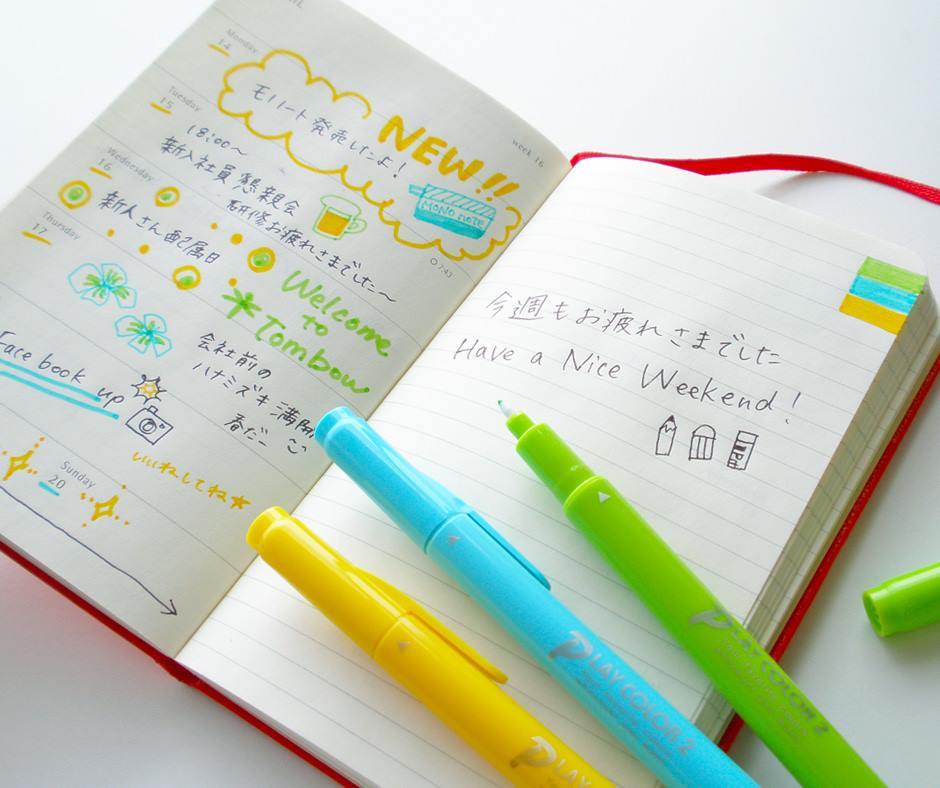 Monday
14
モノノート発売したよ!
NEW!!
week 16
MONO note
Tuesday
15
18:00~
新入社員懇親会
研修お疲れさまでした~
7:43
Wednesday
16
新人さん配属日
Thursday
17
Welcome
to
Tombow
会社前の
ハナミズキ満開
春だー
Face book up
いいねしてね★
Sunday
20
今週もお疲れさまでした
Have a Nice Weekend!
PLAY COLOR 2
PLAY COLOR 2
PLAY